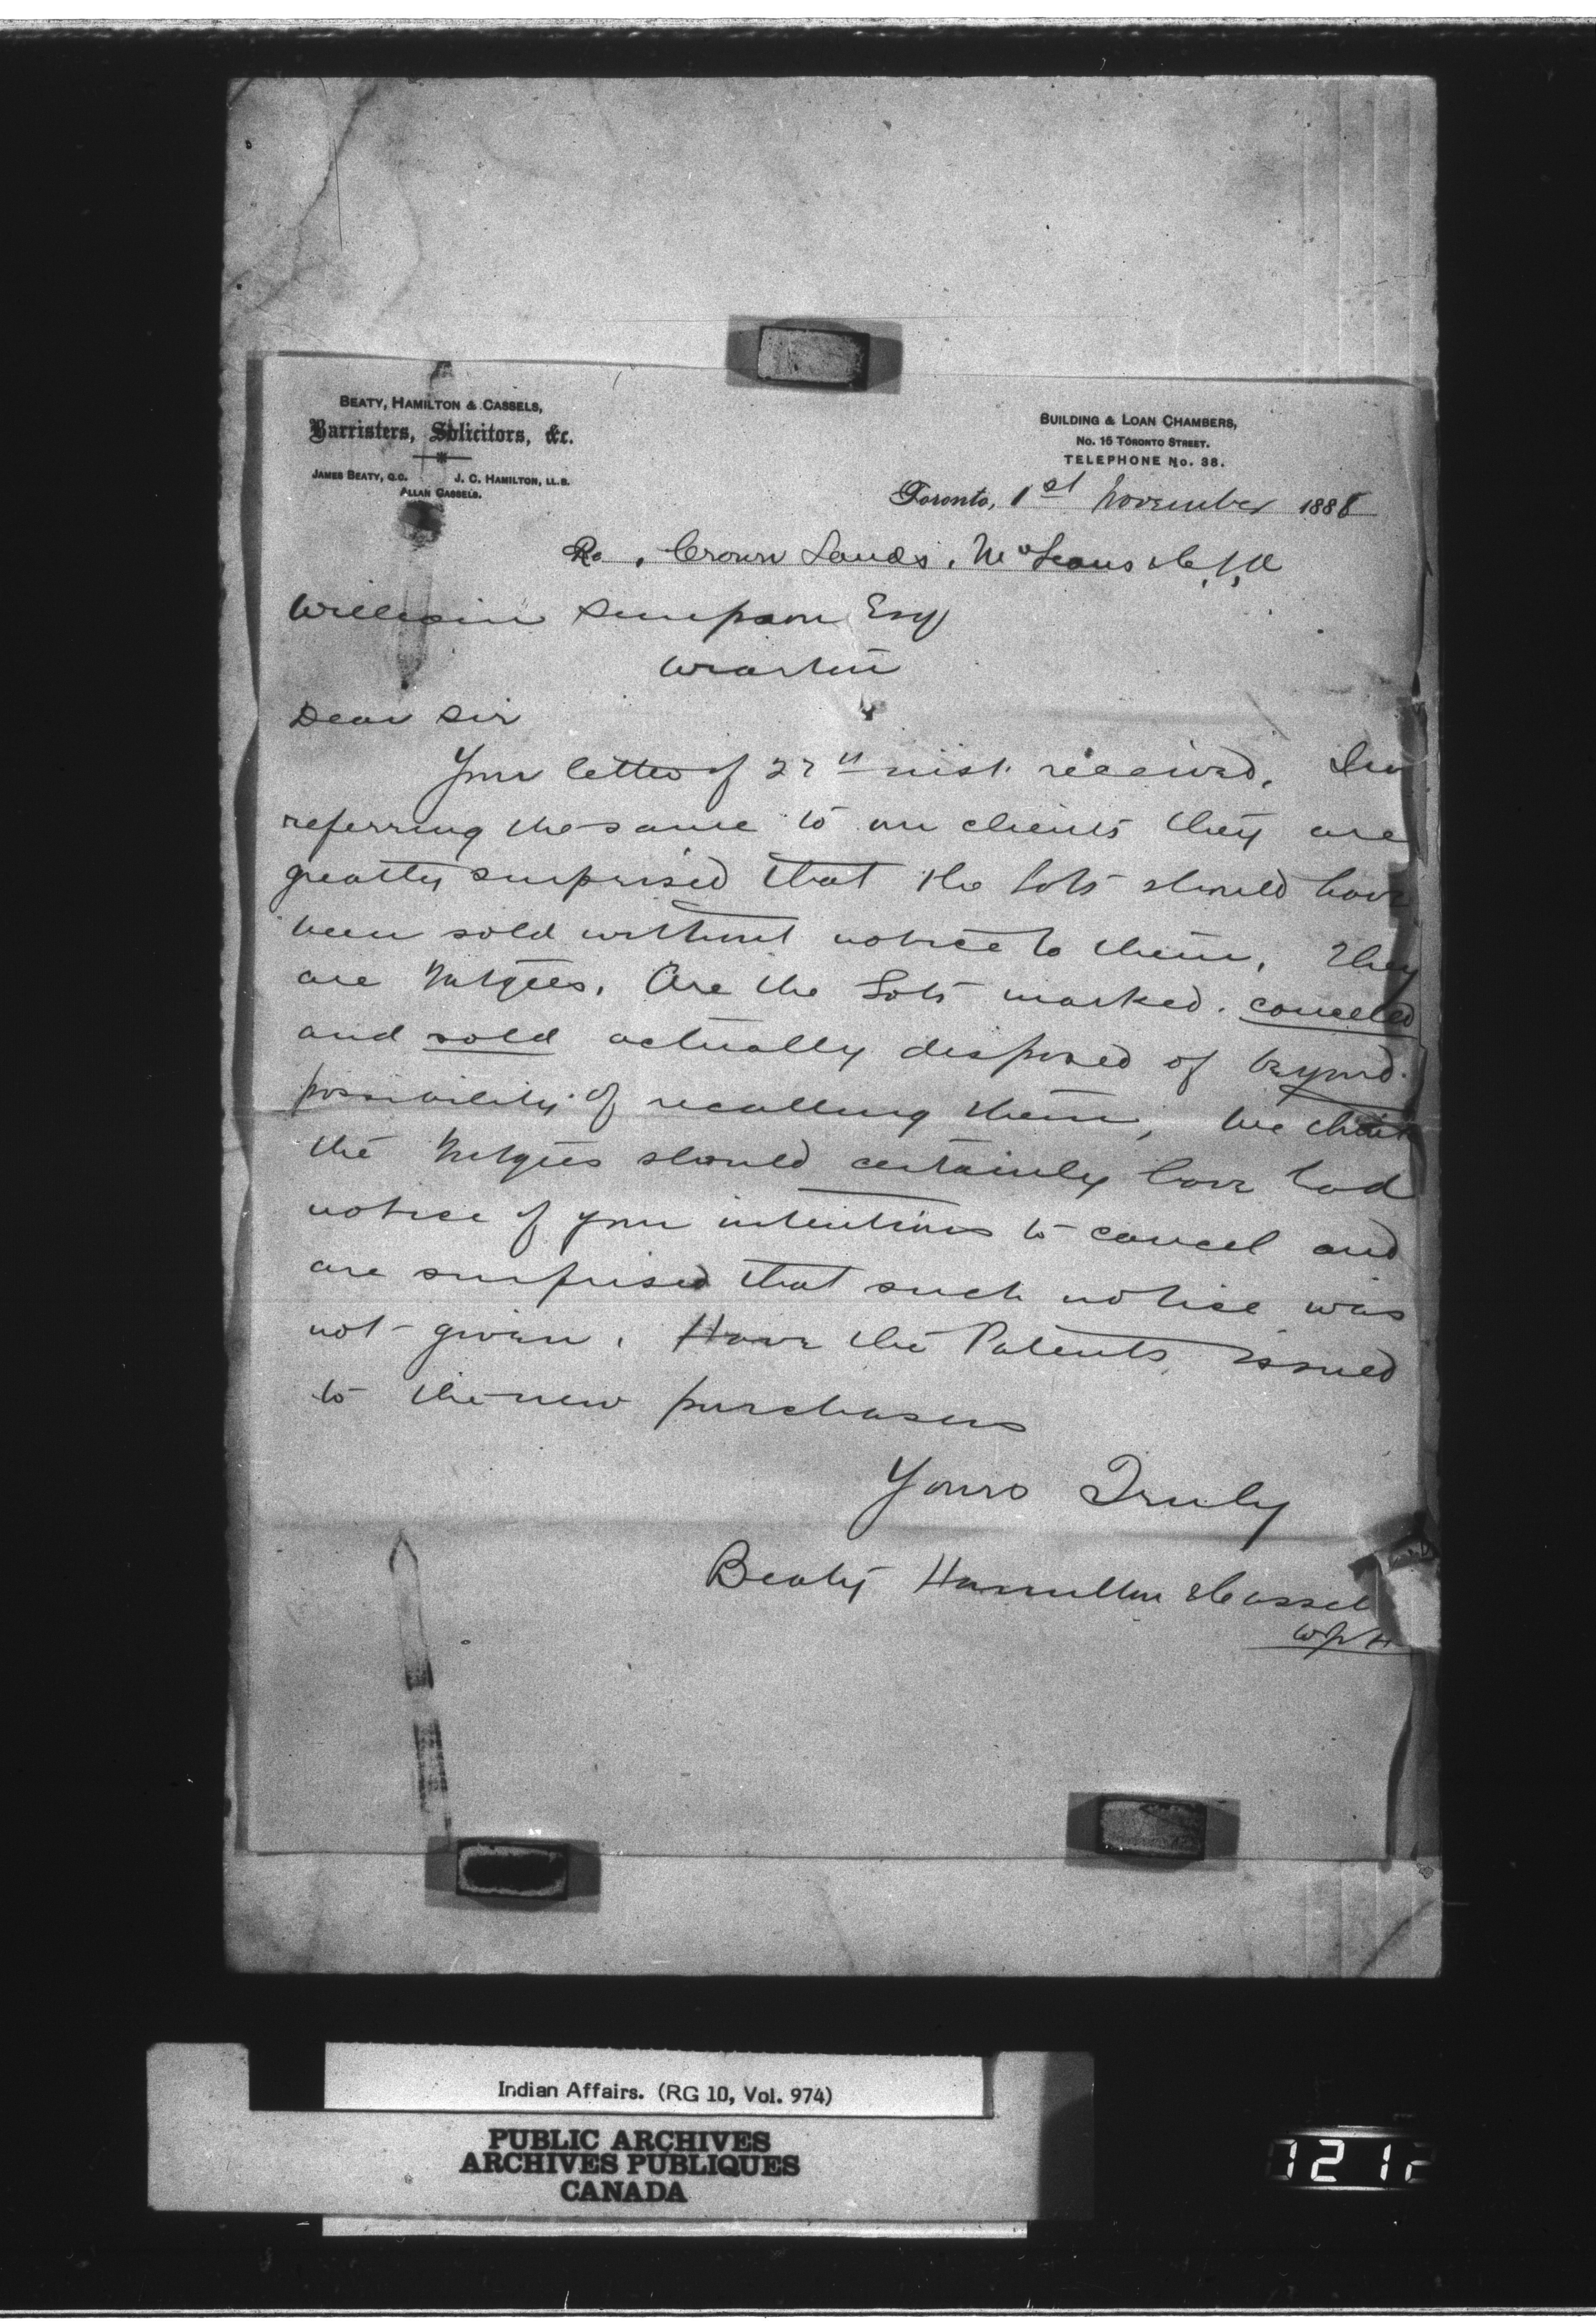 BEATY, HAMILTON & CASSELS,
Barristers, Solicitors, &c.
JAMES BEATY, Q.C. J. C. HAMILTON, LL.B.
ALLAN CASSELS.
BUILDING & LOAN CHAMBERS,
No. 15 TORONTO STREET.
TELEPHONE No. 38.
Toronto, 1st November 1888
Re. Crown Lands.
William Simpson Esq
Wiarton
Dear Sir
Your letter of 27th inst. received. In
referring the same to our clients they are
greatly surprised that the Lots should have
been sold without notice to them. They
are Mtgees. Are the Lots marked. cancelled
and sold actually disposed of beyond
possibility of recalling them, We think
the Mtgees should certainly have had
notice of your intentions to cancel and
are surprised that such notice was
not given. Have the Patents issued
to the new purchasers
Yours Truly
Beaty Hamilton & Cassels
Indian Affairs. (RG 10, Vol. 974)
PUBLIC ARCHIVES
ARCHIVES PUBLIQUES
CANADA
1212